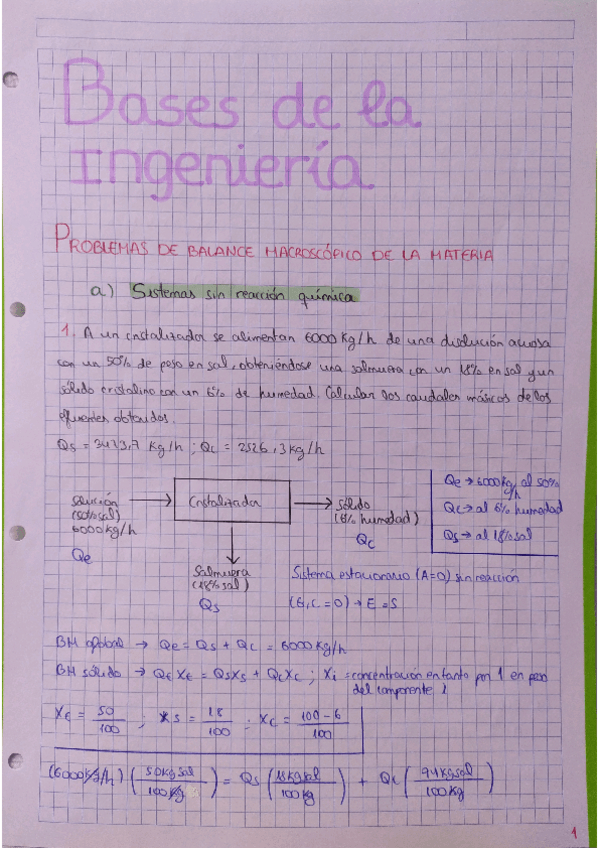 Bases de la
Ingeniería
PROBLEMAS DE BALANCE MACROSCÓPICO DE LA MATERIA
a) Sistemas sin reacción química
1. A un cristalizador se alimentan 6000 Kg/h de una disolución acuosa
con un 50% de peso en sal, obteniéndose una salmuera con un 18% en sal y un
sólido cristalino con un 6% de humedad. Calcular los caudales másicos de los
efluentes obtenidos.
Qs = 3473,7 Kg/h ; Qc = 2526,3 kg/h
solución
(50% sal)
6000 kg/h
Qe
Cristalizador
sólido
(6% humedad)
Qc
Salmuera
(18% sal)
Qs
Qe → 6000 kg/h al 50%
Qc → al 6% humedad
Qs → al 18% sal
Sistema estacionario (A=0) sin reacción
(G, C = 0) → E = S
BM global → Qe = Qs + Qc = 6000 Kg/h
BM sólido → Qe Xe = Qs Xs + Qc Xc ; Xi = concentración en tanto por 1 en peso
del componente i
Xe = 50/100 ; Xs = 18/100 ; Xc = 100-6/100
(6000 kg/h) (50 kg sal/100 kg) = Qs (18 kg sal/100 kg) + Qc (94 kg sal/100 kg)
1